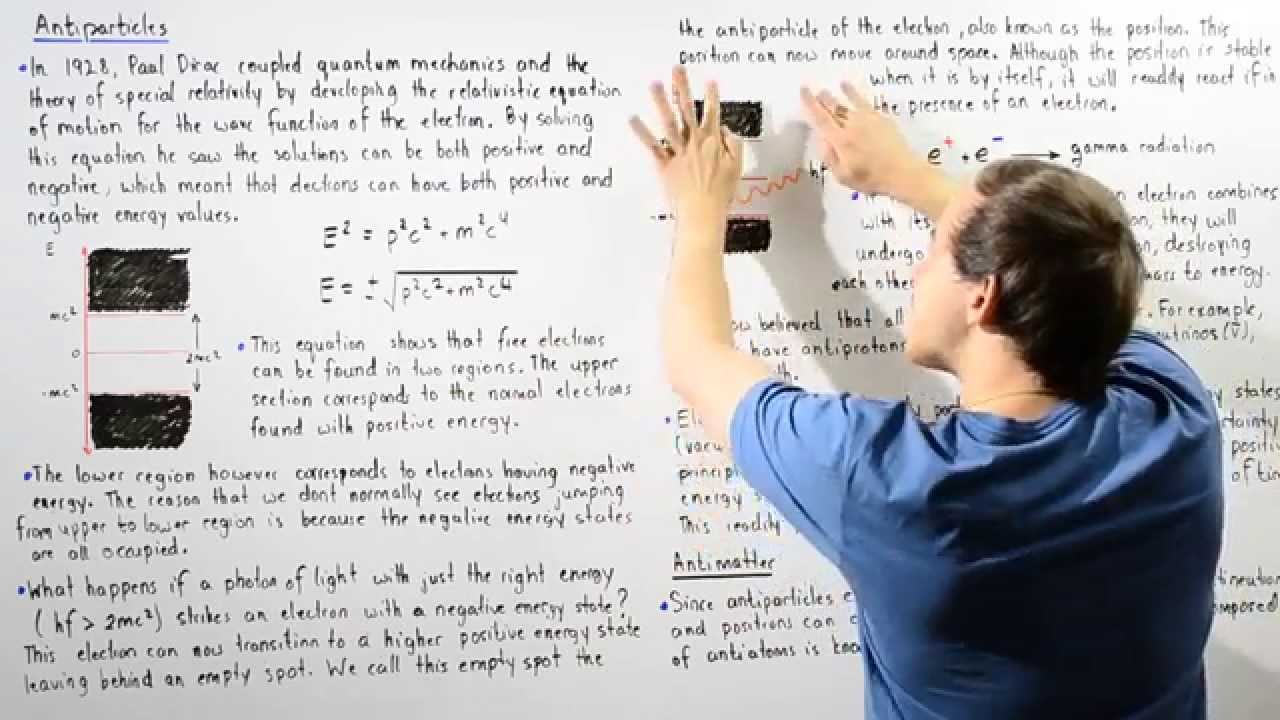 Antiparticles
• In 1928, Paul Dirac coupled quantum mechanics and the
theory of special relativity by developing the relativistic equation
of motion for the wave function of the electron. By solving
this equation he saw the solutions can be both positive and
negative, which meant that electrons can have both positive and
negative energy values.
E² = p²c² + m²c⁴
E = ± √p²c² + m²c⁴
E
mc²
0
-mc²
2mc²
• This equation shows that free electrons
can be found in two regions. The upper
section corresponds to the normal electrons
found with positive energy.
• The lower region however corresponds to electons having negative
energy. The reason that we dont normally see electrons jumping
from upper to lower region is because the negative energy states
are all occupied.
• What happens if a photon of light with just the right energy
(hf > 2mc²) strikes an electron with a negative energy state?
This electron can now transition to a higher positive energy state
leaving behind an empty spot. We call this empty spot the
the antiparticle of the electron, also known as the position. This
position can now move around space. Although the position is stable
when it is by itself, it will readily react if in
the presence of an electron.
hf
e⁺ + e⁻ → gamma radiation
electron combines
with its, they will
undergo destroying
each other mass to energy.
believed that all For example,
have antiprotons (ν̄),
states
(
principl
energy of
This readily
Antimatter
• Since antiparticles
and positrons can
of antiatoms is